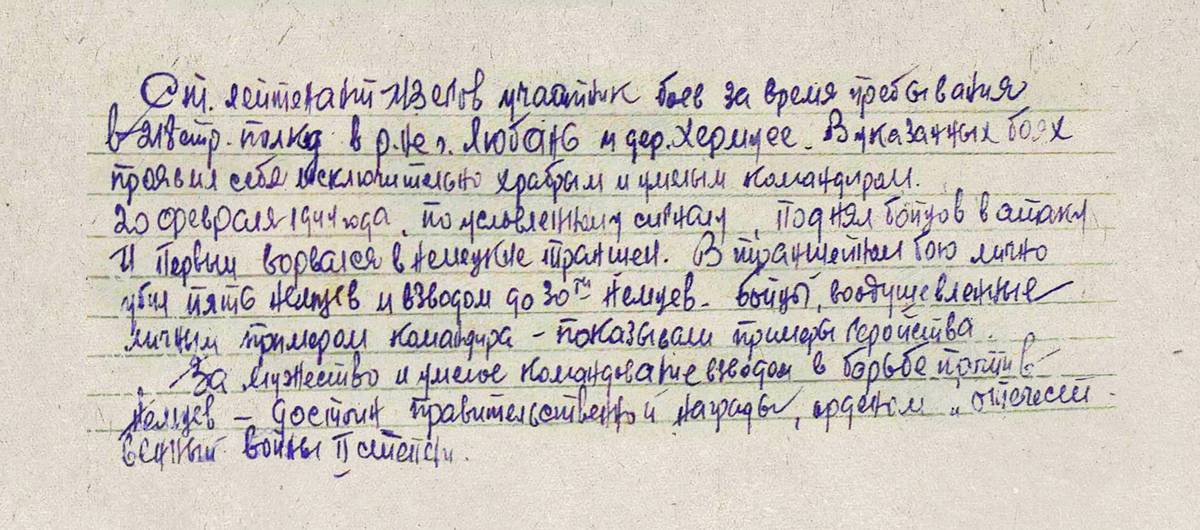 Ст. лейтенант Изепов участник боев за время пребывания
в 218 стр. полку в р-не г. Любань и дер. Хермуее. В указанных боях
проявил себя исключительно храбрым и умелым командиром.
20 февраля 1944 года, по условленному сигналу, поднял бойцов в атаку
и первым ворвался в немецкие траншеи. В траншейном бою лично
убил пять немцев и взводом до 30ти немцев. Бойцы, воодушевленные
личным примером командира – показывали примеры геройства.
За мужество и умелое командование взводом в борьбе против
немцев – достоин правительственной награды, орденом „Отечест-
венный войны II степени.